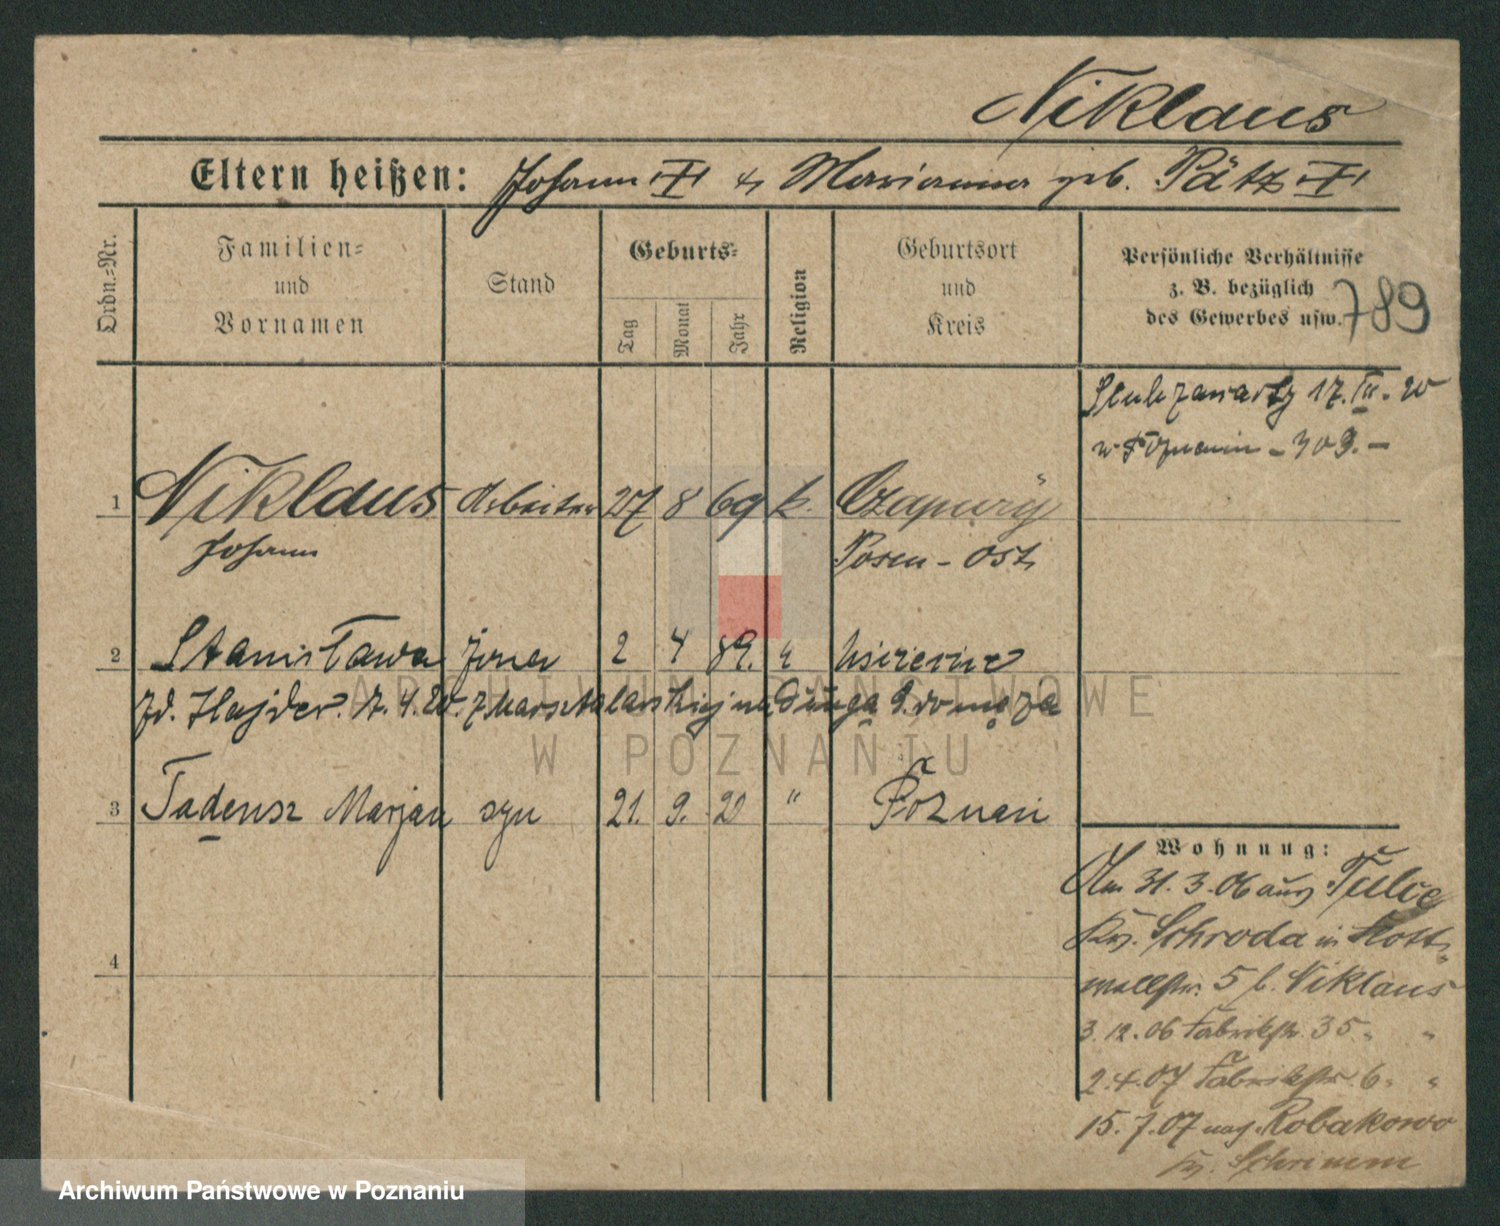 Niklaus
Eltern heißen: Johann † & Marianna geb. Pätz †
Ordn.-Nr.
Familien-
und
Vornamen
Stand
Geburts-
Tag
Monat
Jahr
Religion
Geburtsort
und
Kreis
Persönliche Verhältnisse
z. B. bezüglich
des Gewerbes usw.
789
Ślub zawarty 17. III. 20
w Poznaniu - 309. -
1 Niklaus Arbeiter 27 8 69 k. Czapury
Johann Posen - Ost
2 Stanisława żona 2 4 89. "
zd. Hajder. 17. 4. 20. z Marstalarskiej na Długą 9. do męża
3 Tadeusz Marjan syn 21. 9. 20 " Poznań
4
Wohnung:
Am 31. 3. 06 aus Tulce
Kr. Schroda in
wallstr. 5 b. Niklaus
3. 12. 06 Fabrikstr. 35 " "
2. 4. 07 Fabrikstr. 6 " "
15. 7. 07 nach Robakowo
Kr. Schrimm
ARCHIWUM PAŃSTWOWE
W POZNANIU
Archiwum Państwowe w Poznaniu